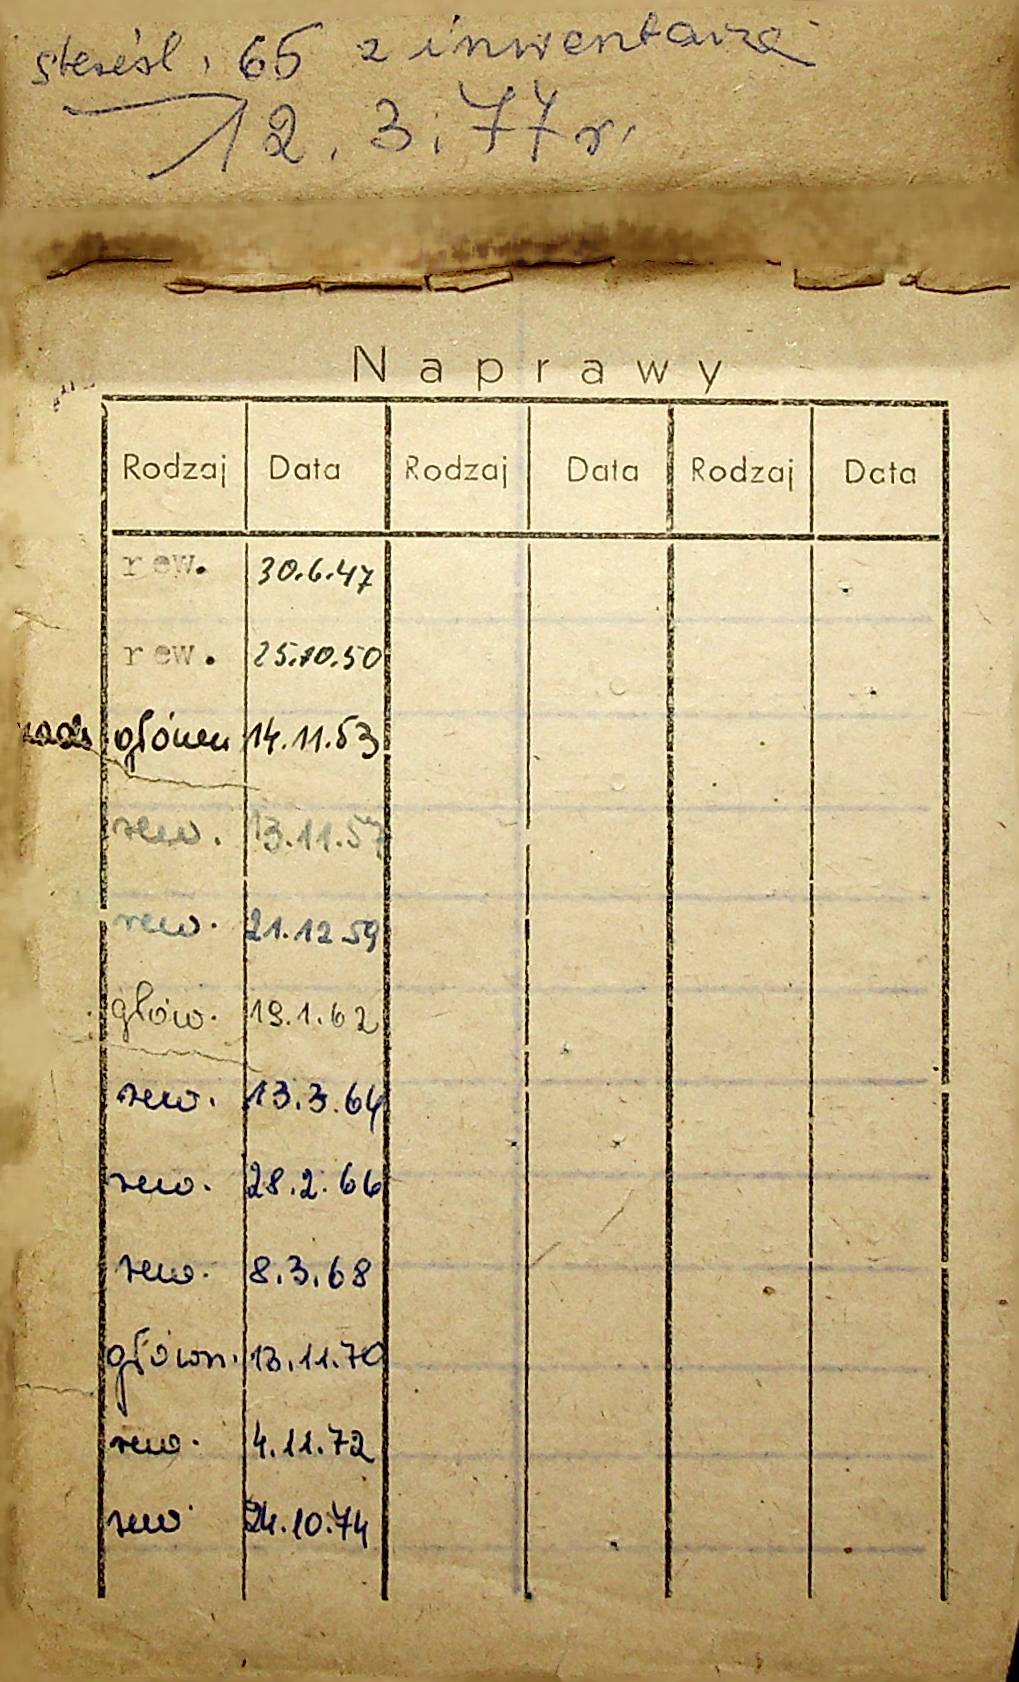 skreśl. z inwentarza
12.3.77r.
Naprawy
Rodzaj Data Rodzaj Data Rodzaj Data
rew. 30.6.47
rew. 25.10.50
główn 14.11.53
rew. 13.11.57
rew. 21.12 59
głów. 19.1.62
rew. 13.3.64
rew. 28.2.66
rew. 8.3.68
główn. 13.11.70
rew. 4.11.72
rew 24.10.74